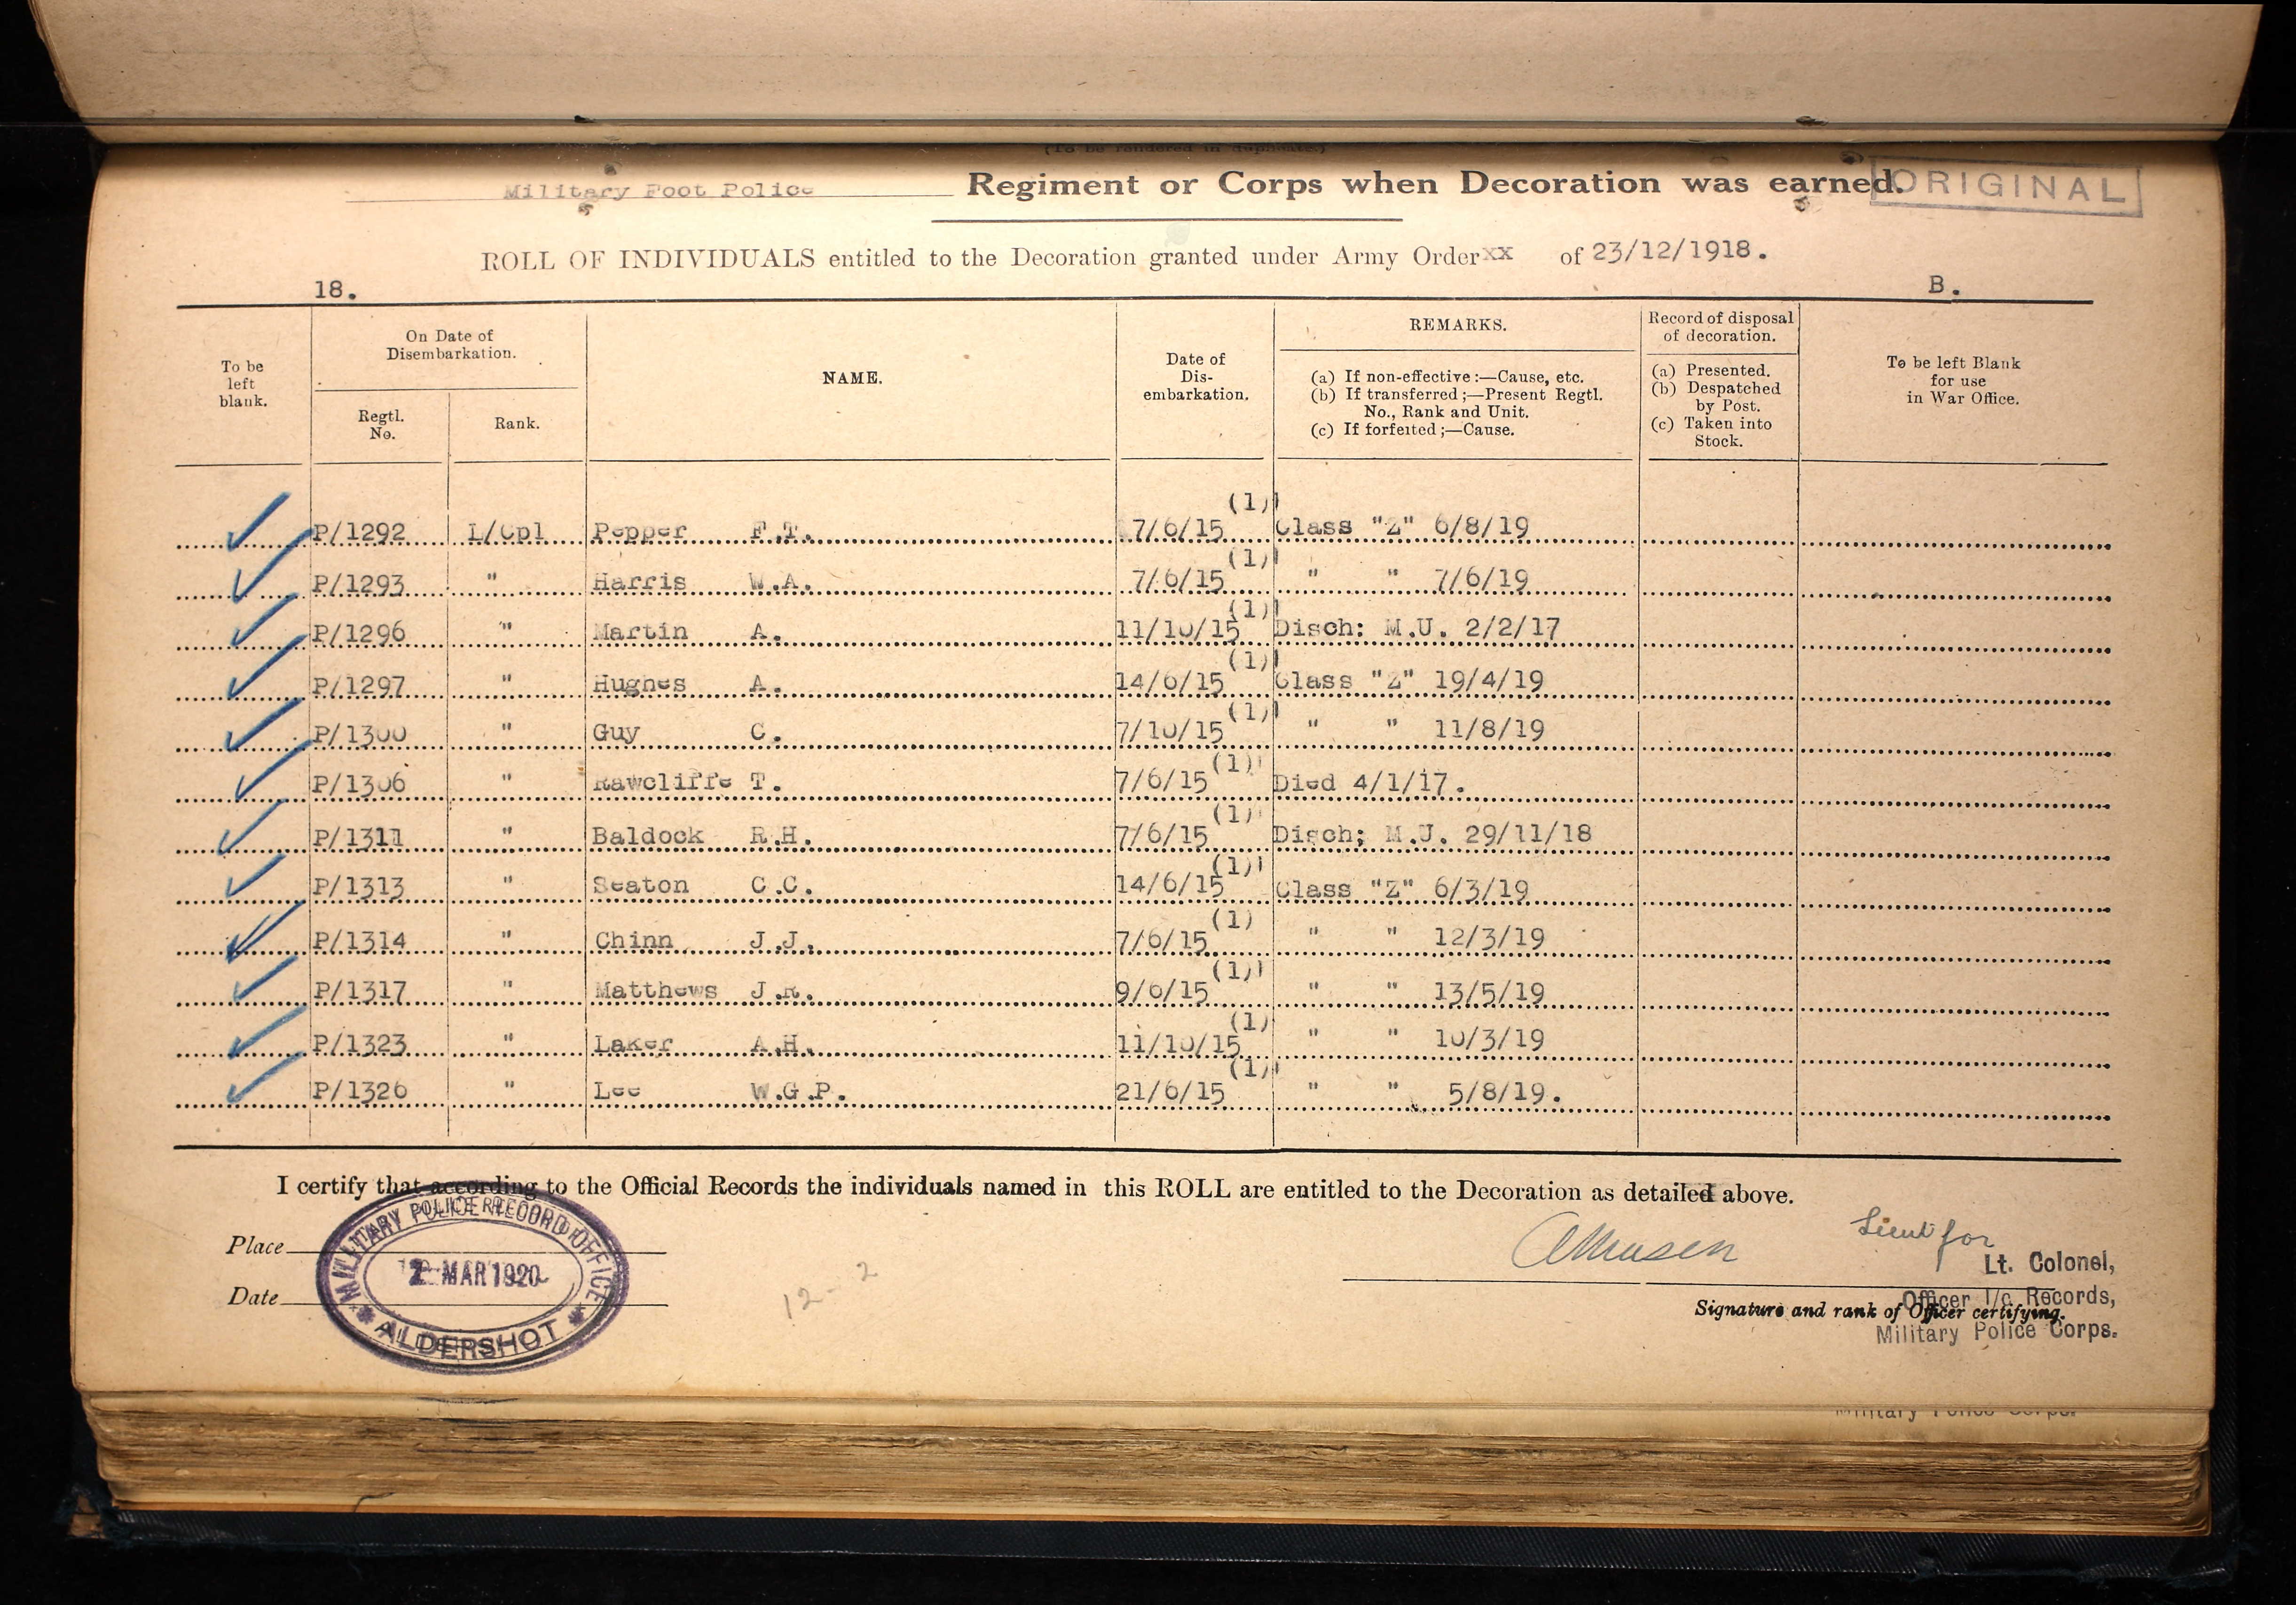 (To be rendered in duplicate.)
Military Foot Police Regiment or Corps when Decoration was earned.
ORIGINAL
ROLL OF INDIVIDUALS entitled to the Decoration granted under Army Order xx of 23/12/1918.
18. B.
To be left blank.
On Date of Disembarkation.
Regtl. No.
Rank.
NAME.
Date of Dis-embarkation.
REMARKS.
(a) If non-effective:—Cause, etc.
(b) If transferred;—Present Regtl. No., Rank and Unit.
(c) If forfeited;—Cause.
Record of disposal of decoration.
(a) Presented.
(b) Despatched by Post.
(c) Taken into Stock.
To be left Blank for use in War Office.
P/1292 L/Cpl Pepper F.T. 7/6/15 (1) Class "Z" 6/8/19
P/1293 " Harris W.A. 7/6/15 (1) " " 7/6/19
P/1296 " Martin A. 11/10/15 (1) Disch: M.U. 2/2/17
P/1297 " Hughes A. 14/6/15 (1) Class "Z" 19/4/19
P/1300 " Guy C. 7/10/15 (1) " " 11/8/19
P/1306 " Rawcliffe T. 7/6/15 (1) Died 4/1/17.
P/1311 " Baldock R.H. 7/6/15 (1) Disch; M.U. 29/11/18
P/1313 " Seaton C.C. 14/6/15 (1) Class "Z" 6/3/19
P/1314 " Chinn J.J. 7/6/15 (1) " " 12/3/19
P/1317 " Matthews J.R. 9/6/15 (1) " " 13/5/19
P/1323 " Laker A.H. 11/10/15 (1) " " 10/3/19
P/1326 " Lee W.G.P. 21/6/15 (1) " " 5/8/19.
I certify that according to the Official Records the individuals named in this ROLL are entitled to the Decoration as detailed above.
Place
Date
MILITARY POLICE RECORD OFFICE
2 MAR 1920
ALDERSHOT
12-2
Lieut for
Lt. Colonel,
Officer I/c Records,
Signature and rank of Officer certifying.
Military Police Corps.
Military Police Corps.